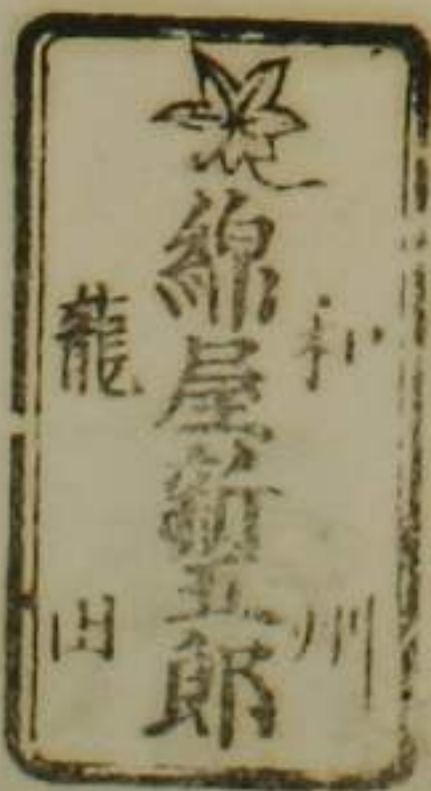 和州
綿屋新五郎
龍田